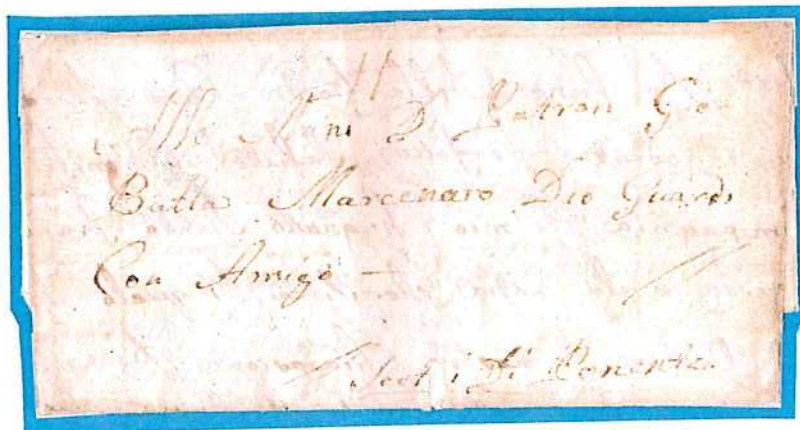 Alle Mani Di Patron Gio
Batta Marcenaro Dio Guardi
Con Amigo —
Sestri Di Ponente